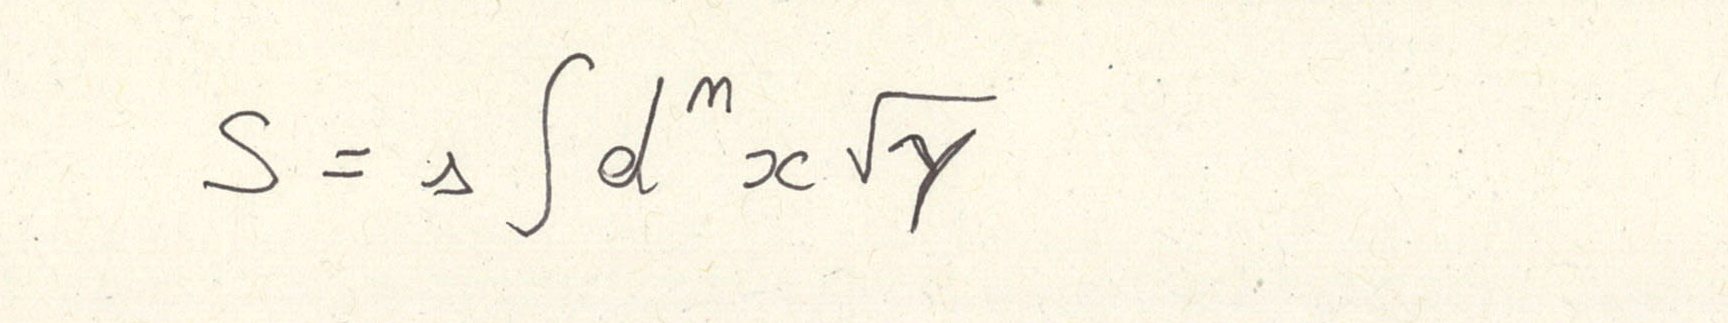 S = s ∫ dⁿx √γ